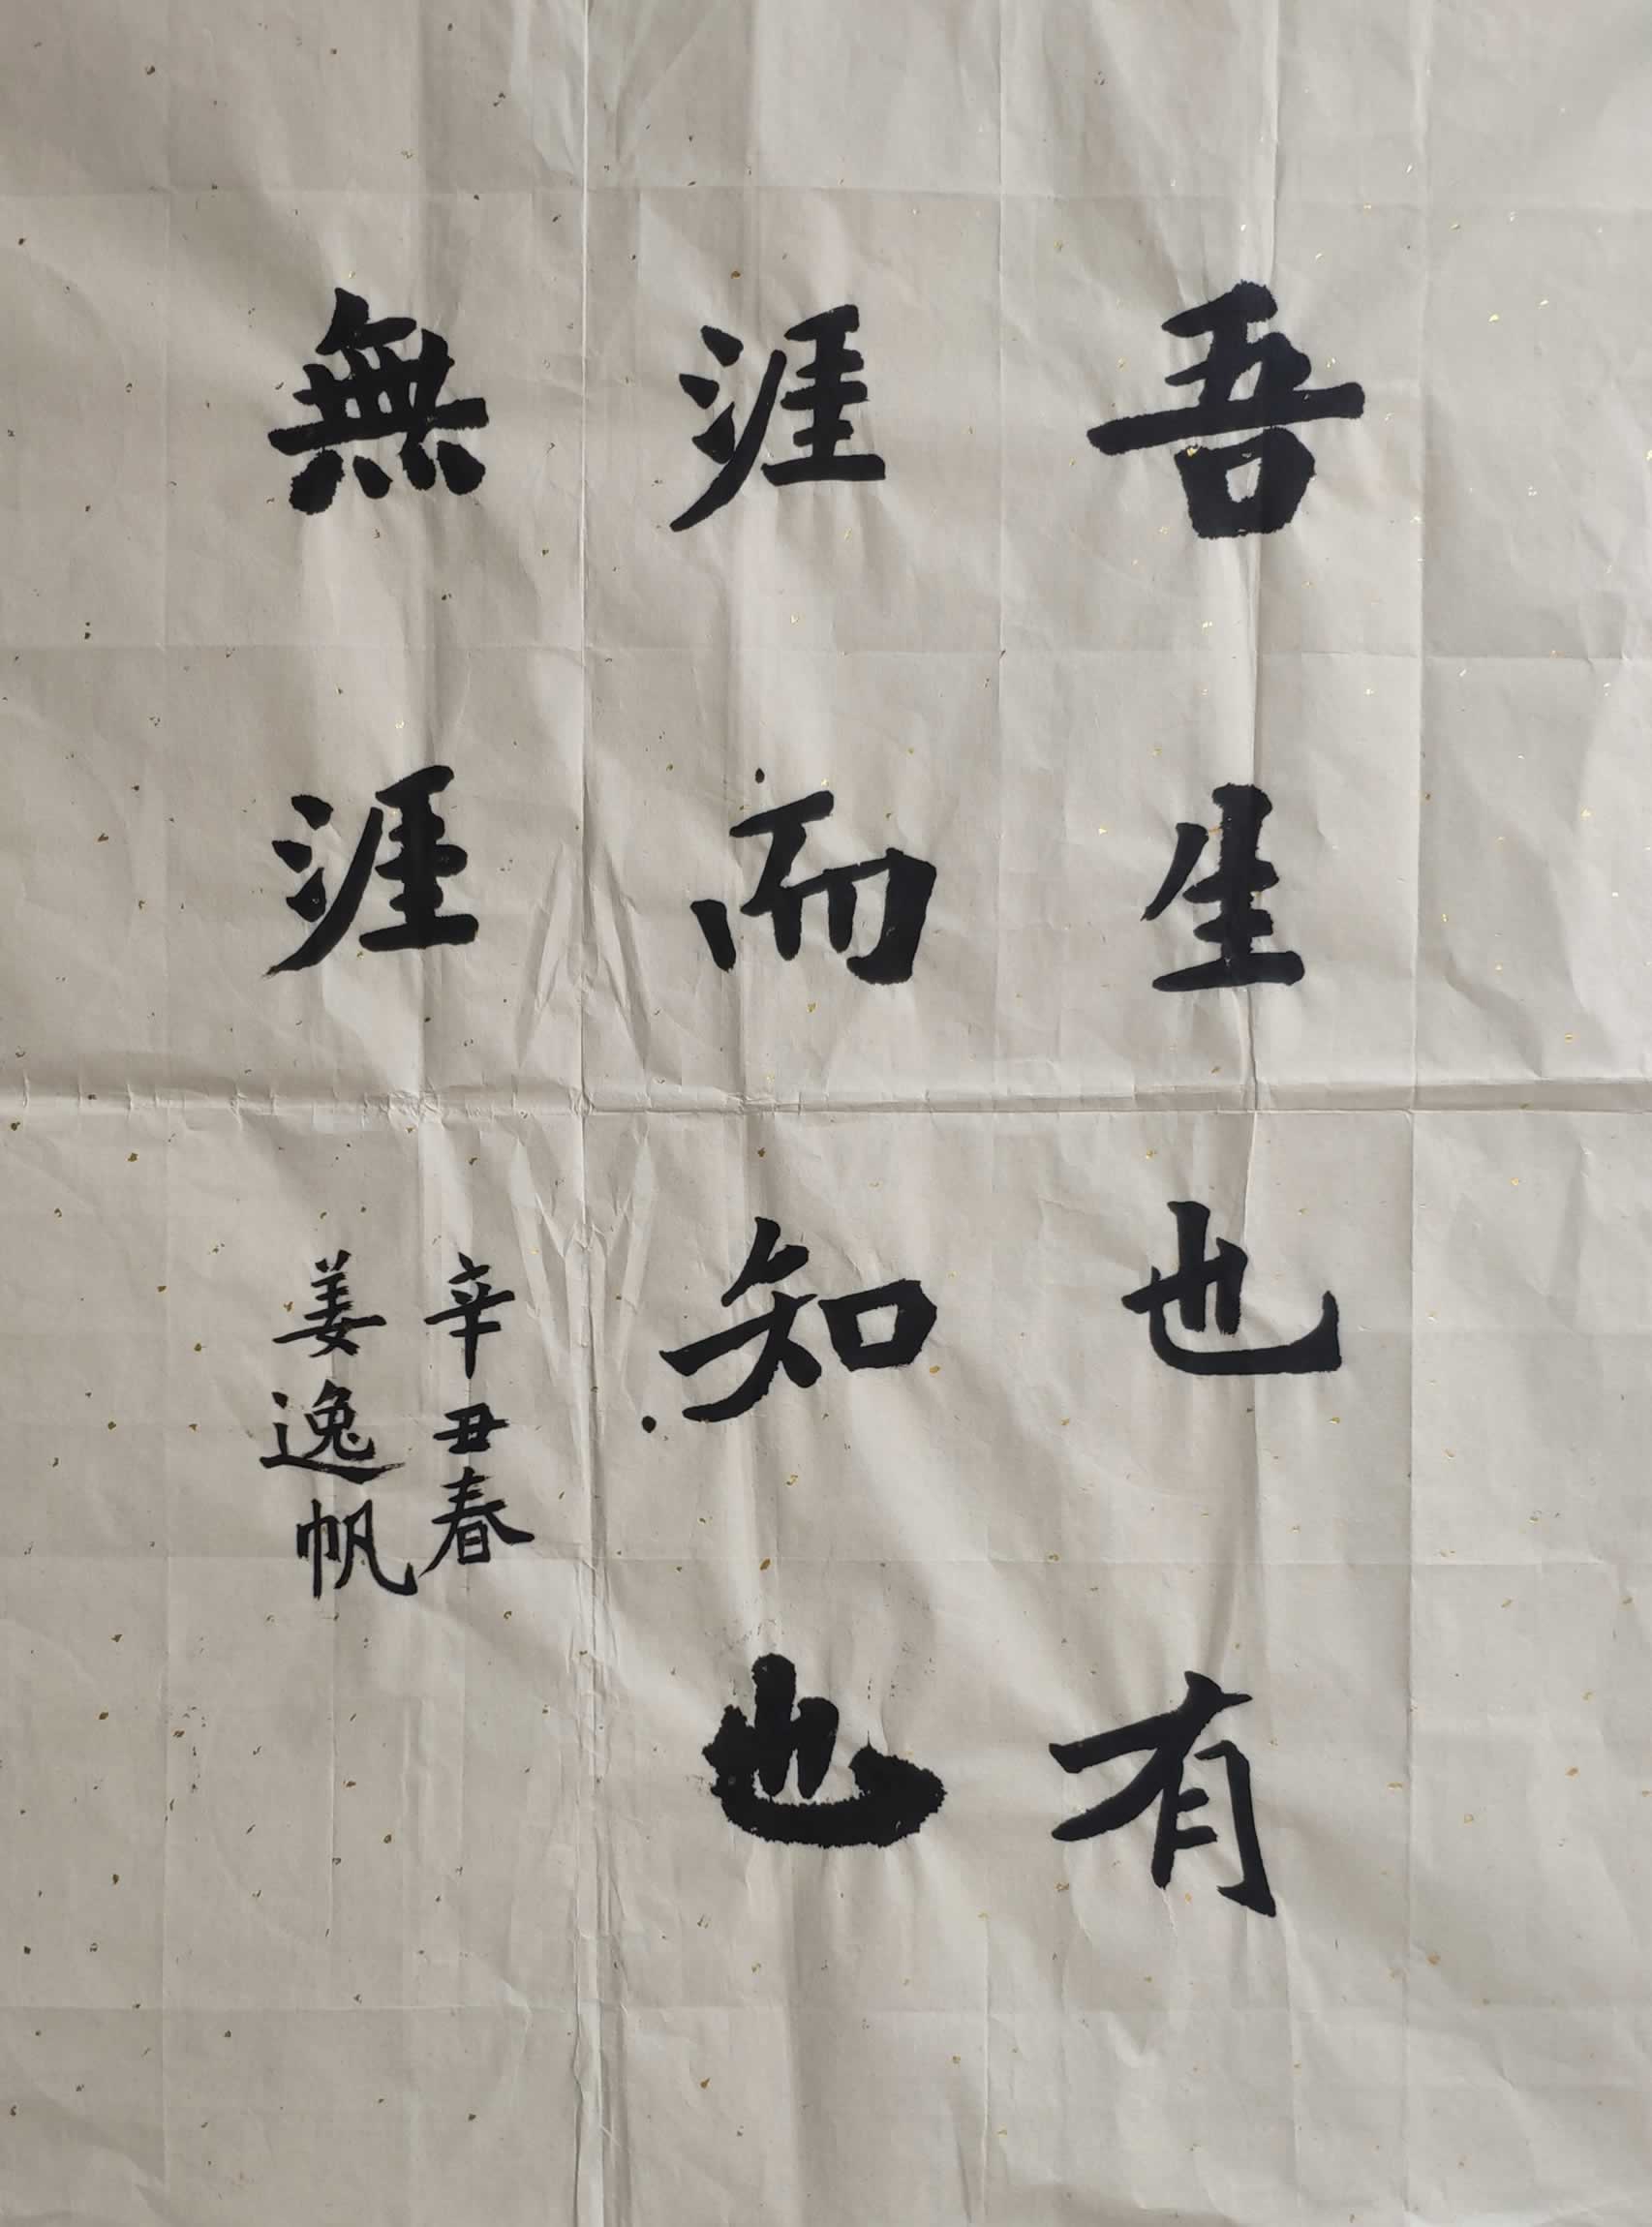 吾生也有
涯而知也
無涯
辛丑春
姜逸帆